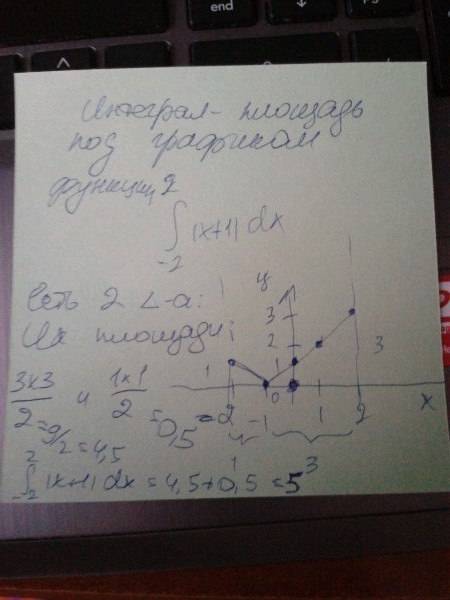 Интеграл - площадь
под графиком
функции
2
∫ |x+1| dx
-2
Есть 2 ∠-а:
Их площади:
3x3/2 и 1x1/2 = 0,5
= 9/2 = 4,5
2
∫ |x+1| dx = 4,5 + 0,5 = 5
-2
y
3
2
1
1
3
0
-2 -1 1 2 x
1 3